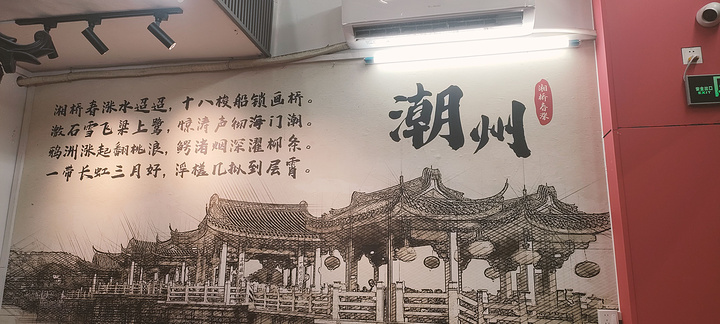 湘桥春涨水迢迢，十八梭船锁画桥。
激石雪飞梁上鹭，惊涛声彻海门潮。
鸦洲涨起翻桃浪，鳄渚烟深濯柳条。
一带长虹三月好，浮槎几拟到层霄。
潮州
湘桥春涨
安全出口